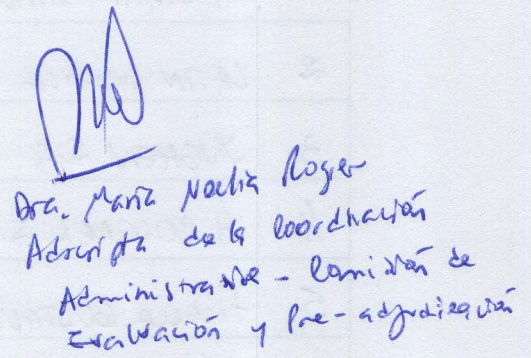 Dra. María Noelia Rogier
Adscripta de la Coordinación
Administrativa - Comisión de
Evaluación y Pre-adjudicación